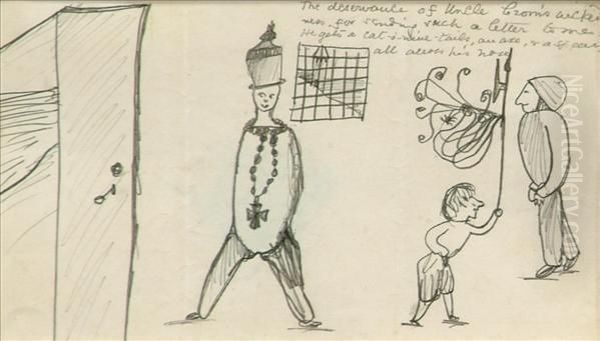 The deservante of Uncle Crom's wicked
ness for sending such a letter to me
He gets a cat-o-nine-tails, an axe, & a
all across his nose
NiceArtGallery.com